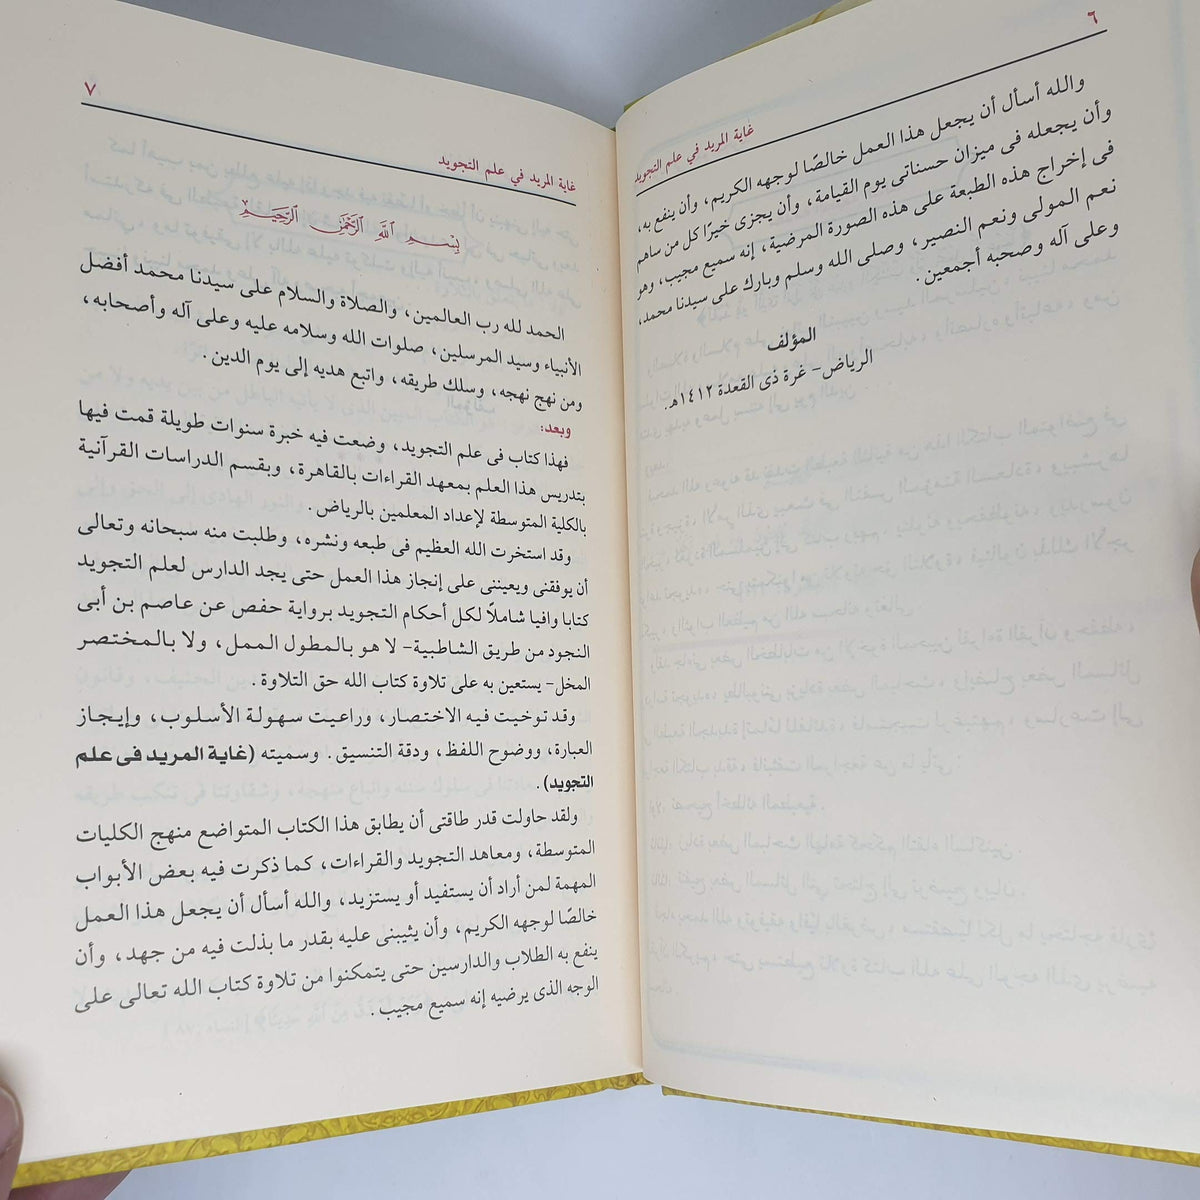 ٦
غاية المريد في علم التجويد
والله أسأل أن يجعل هذا العمل خالصًا لوجهه الكريم، وأن ينفع به،
وأن يجعله فى ميزان حسناتى يوم القيامة، وأن يجزى خيرًا كل من ساهم
فى إخراج هذه الطبعة على هذه الصورة المرضية، إنه سميع مجيب، وهو
نعم المولى ونعم النصير، وصلى الله وسلم وبارك على سيدنا محمد،
وعلى آله وصحبه أجمعين .
المؤلف
الرياض- غرة ذى القعدة ١٤١٢هـ.
٧
غاية المريد في علم التجويد
بِسْمِ اللَّهِ الرَّحْمَٰنِ الرَّحِيمِ
الحمد لله رب العالمين، والصلاة والسلام على سيدنا محمد أفضل
الأنبياء وسيد المرسلين، صلوات الله وسلامه عليه وعلى آله وأصحابه،
ومن نهج نهجه، وسلك طريقه، واتبع هديه إلى يوم الدين .
وبعد:
فهذا كتاب فى علم التجويد، وضعت فيه خبرة سنوات طويلة قمت فيها
بتدريس هذا العلم بمعهد القراءات بالقاهرة، وبقسم الدراسات القرآنية
بالكلية المتوسطة لإعداد المعلمين بالرياض .
وقد استخرت الله العظيم فى طبعه ونشره، وطلبت منه سبحانه وتعالى
أن يوفقنى ويعيننى على إنجاز هذا العمل حتى يجد الدارس لعلم التجويد
كتابا وافيا شاملاً لكل أحكام التجويد برواية حفص عن عاصم بن أبى
النجود من طريق الشاطبية- لا هو بالمطول الممل، ولا بالمختصر
المخل- يستعين به على تلاوة كتاب الله حق التلاوة .
وقد توخيت فيه الاختصار، وراعيت سهولة الأسلوب، وإيجاز
العبارة، ووضوح اللفظ، ودقة التنسيق . وسميته (غاية المريد فى علم
التجويد) .
ولقد حاولت قدر طاقتى أن يطابق هذا الكتاب المتواضع منهج الكليات
المتوسطة، ومعاهد التجويد والقراءات، كما ذكرت فيه بعض الأبواب
المهمة لمن أراد أن يستفيد أو يستزيد، والله أسأل أن يجعل هذا العمل
خالصًا لوجهه الكريم، وأن يثيبنى عليه بقدر ما بذلت فيه من جهد، وأن
ينفع به الطلاب والدارسين حتى يتمكنوا من تلاوة كتاب الله تعالى على
الوجه الذى يرضيه إنه سميع مجيب .